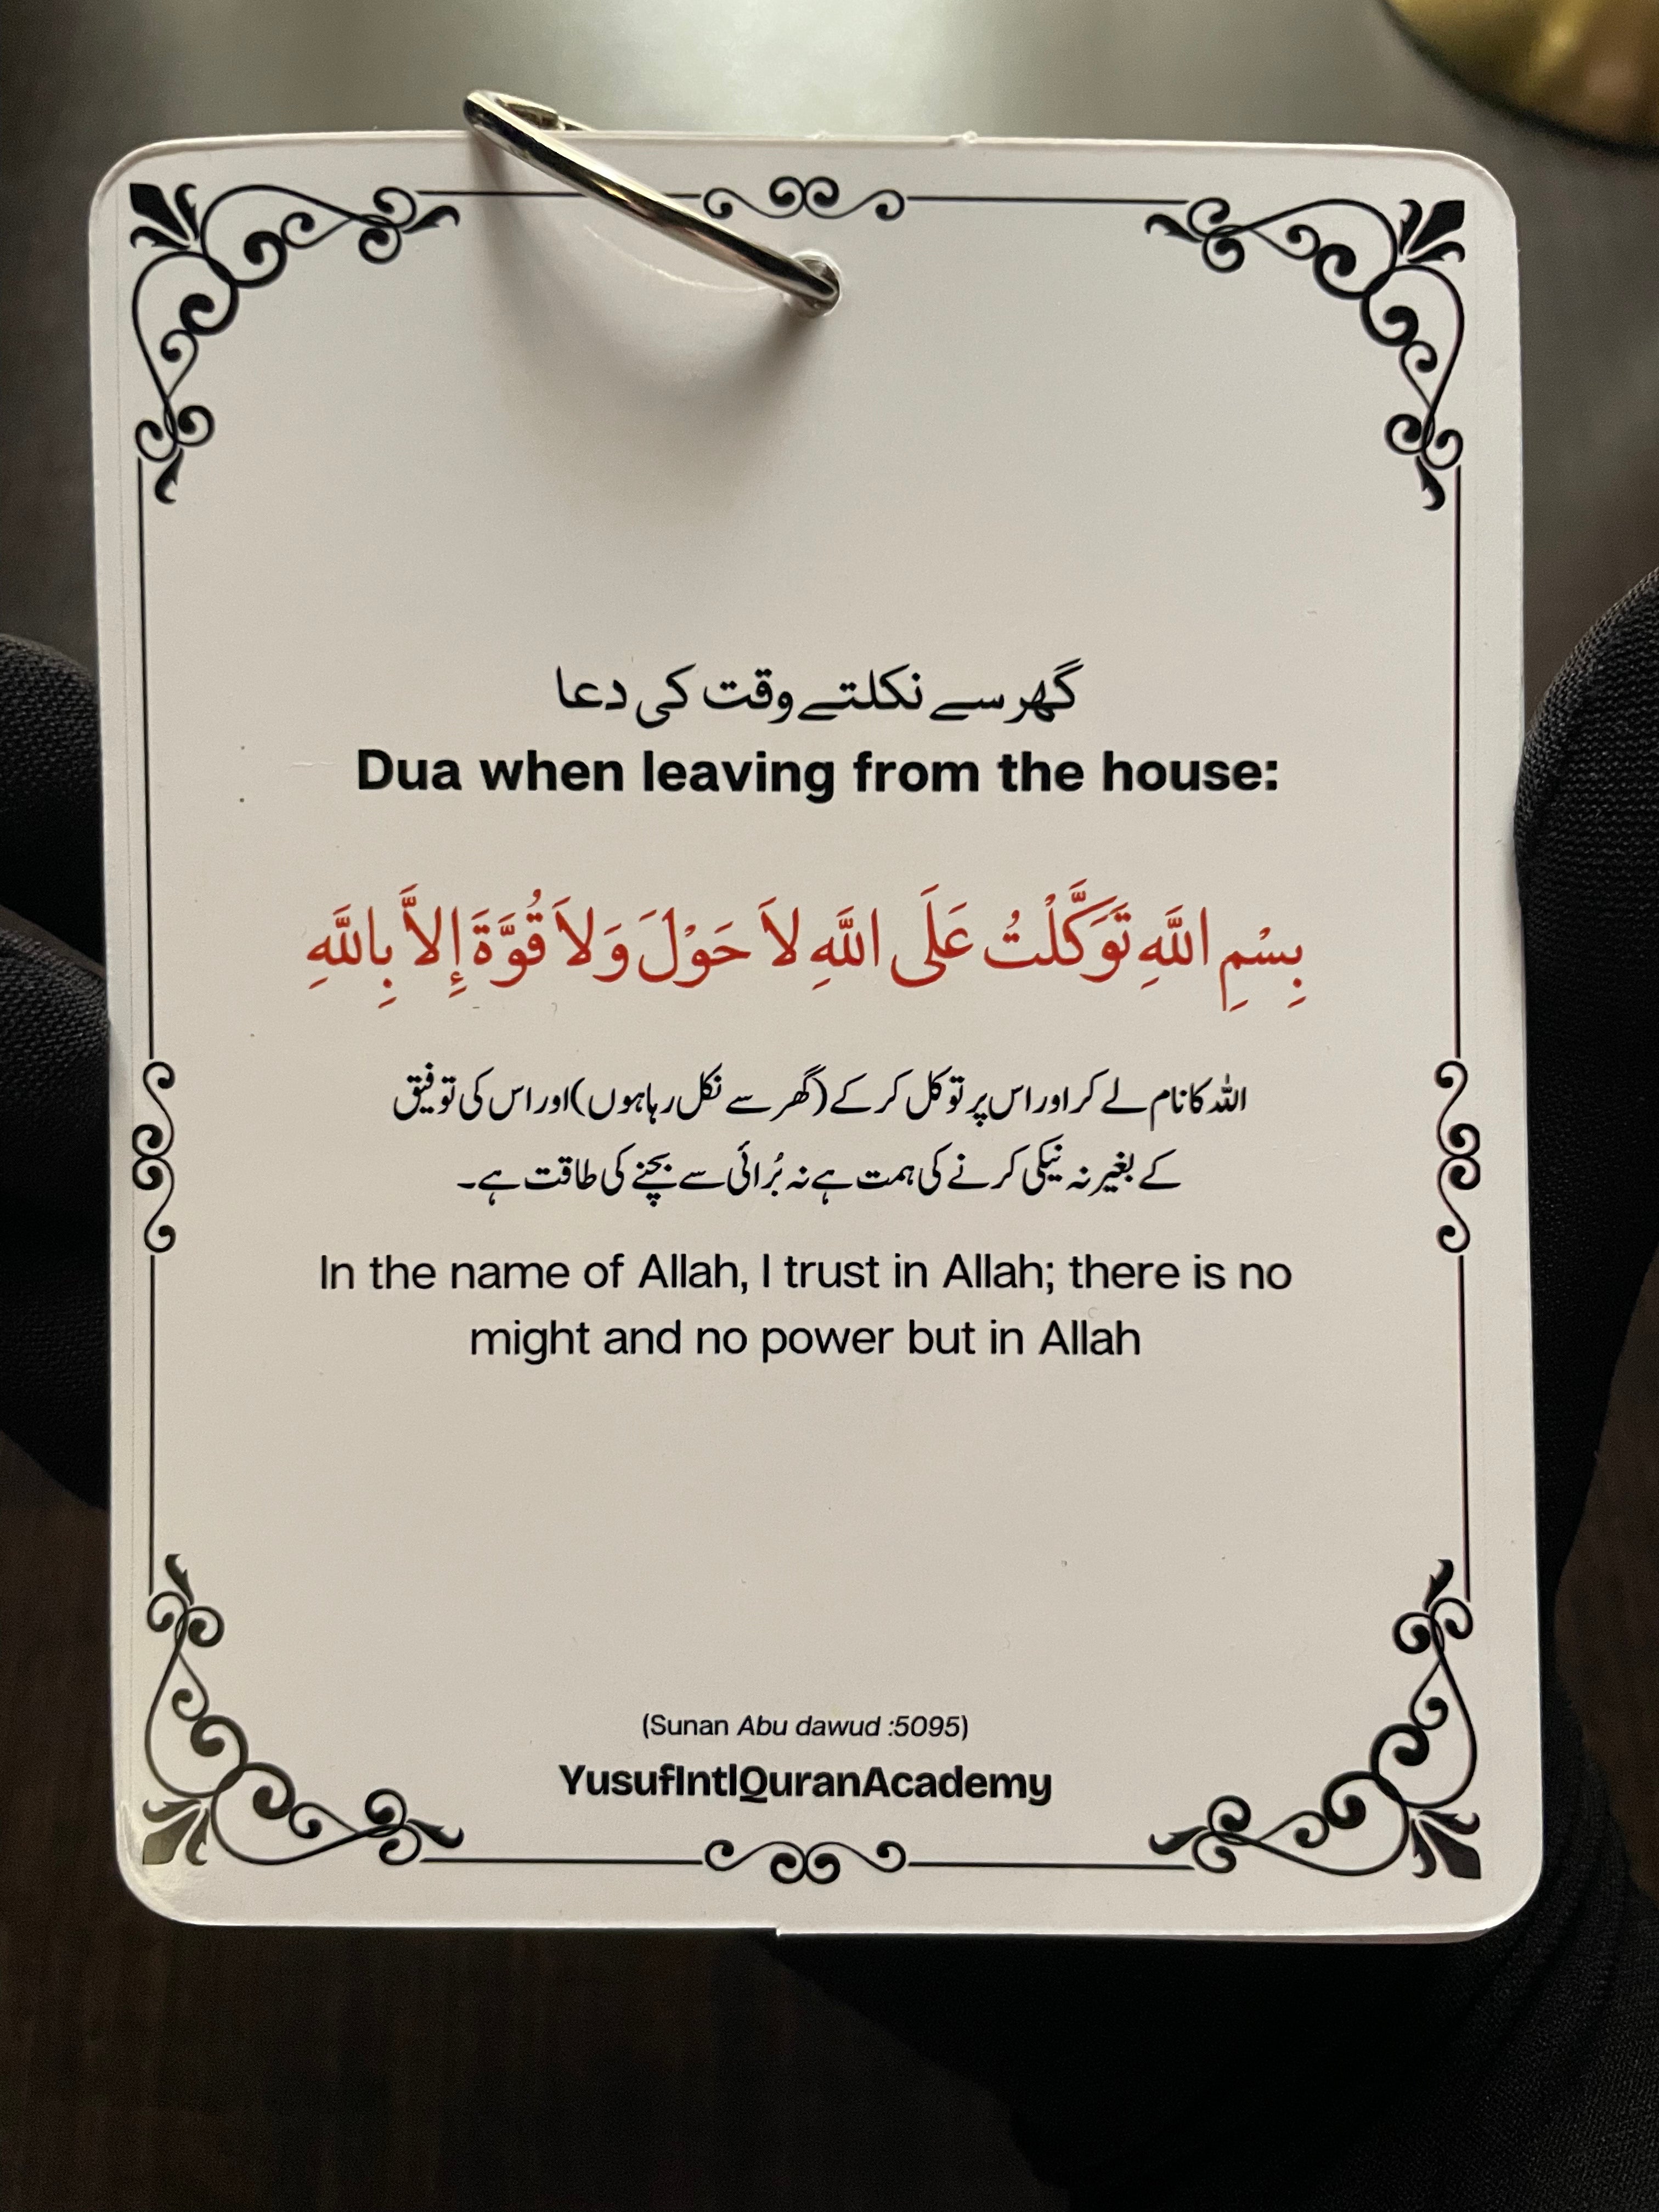 گھر سے نکلتے وقت کی دعا
Dua when leaving from the house:
بِسْمِ اللَّهِ تَوَكَّلْتُ عَلَى اللَّهِ لاَ حَوْلَ وَلاَ قُوَّةَ إِلاَّ بِاللَّهِ
اللہ کا نام لے کر اور اس پر توکل کر کے (گھر سے نکل رہا ہوں) اور اس کی توفیق
کے بغیر نہ نیکی کرنے کی ہمت ہے نہ بُرائی سے بچنے کی طاقت ہے۔
In the name of Allah, I trust in Allah; there is no
might and no power but in Allah
(Sunan Abu dawud :5095)
YusufIntlQuranAcademy